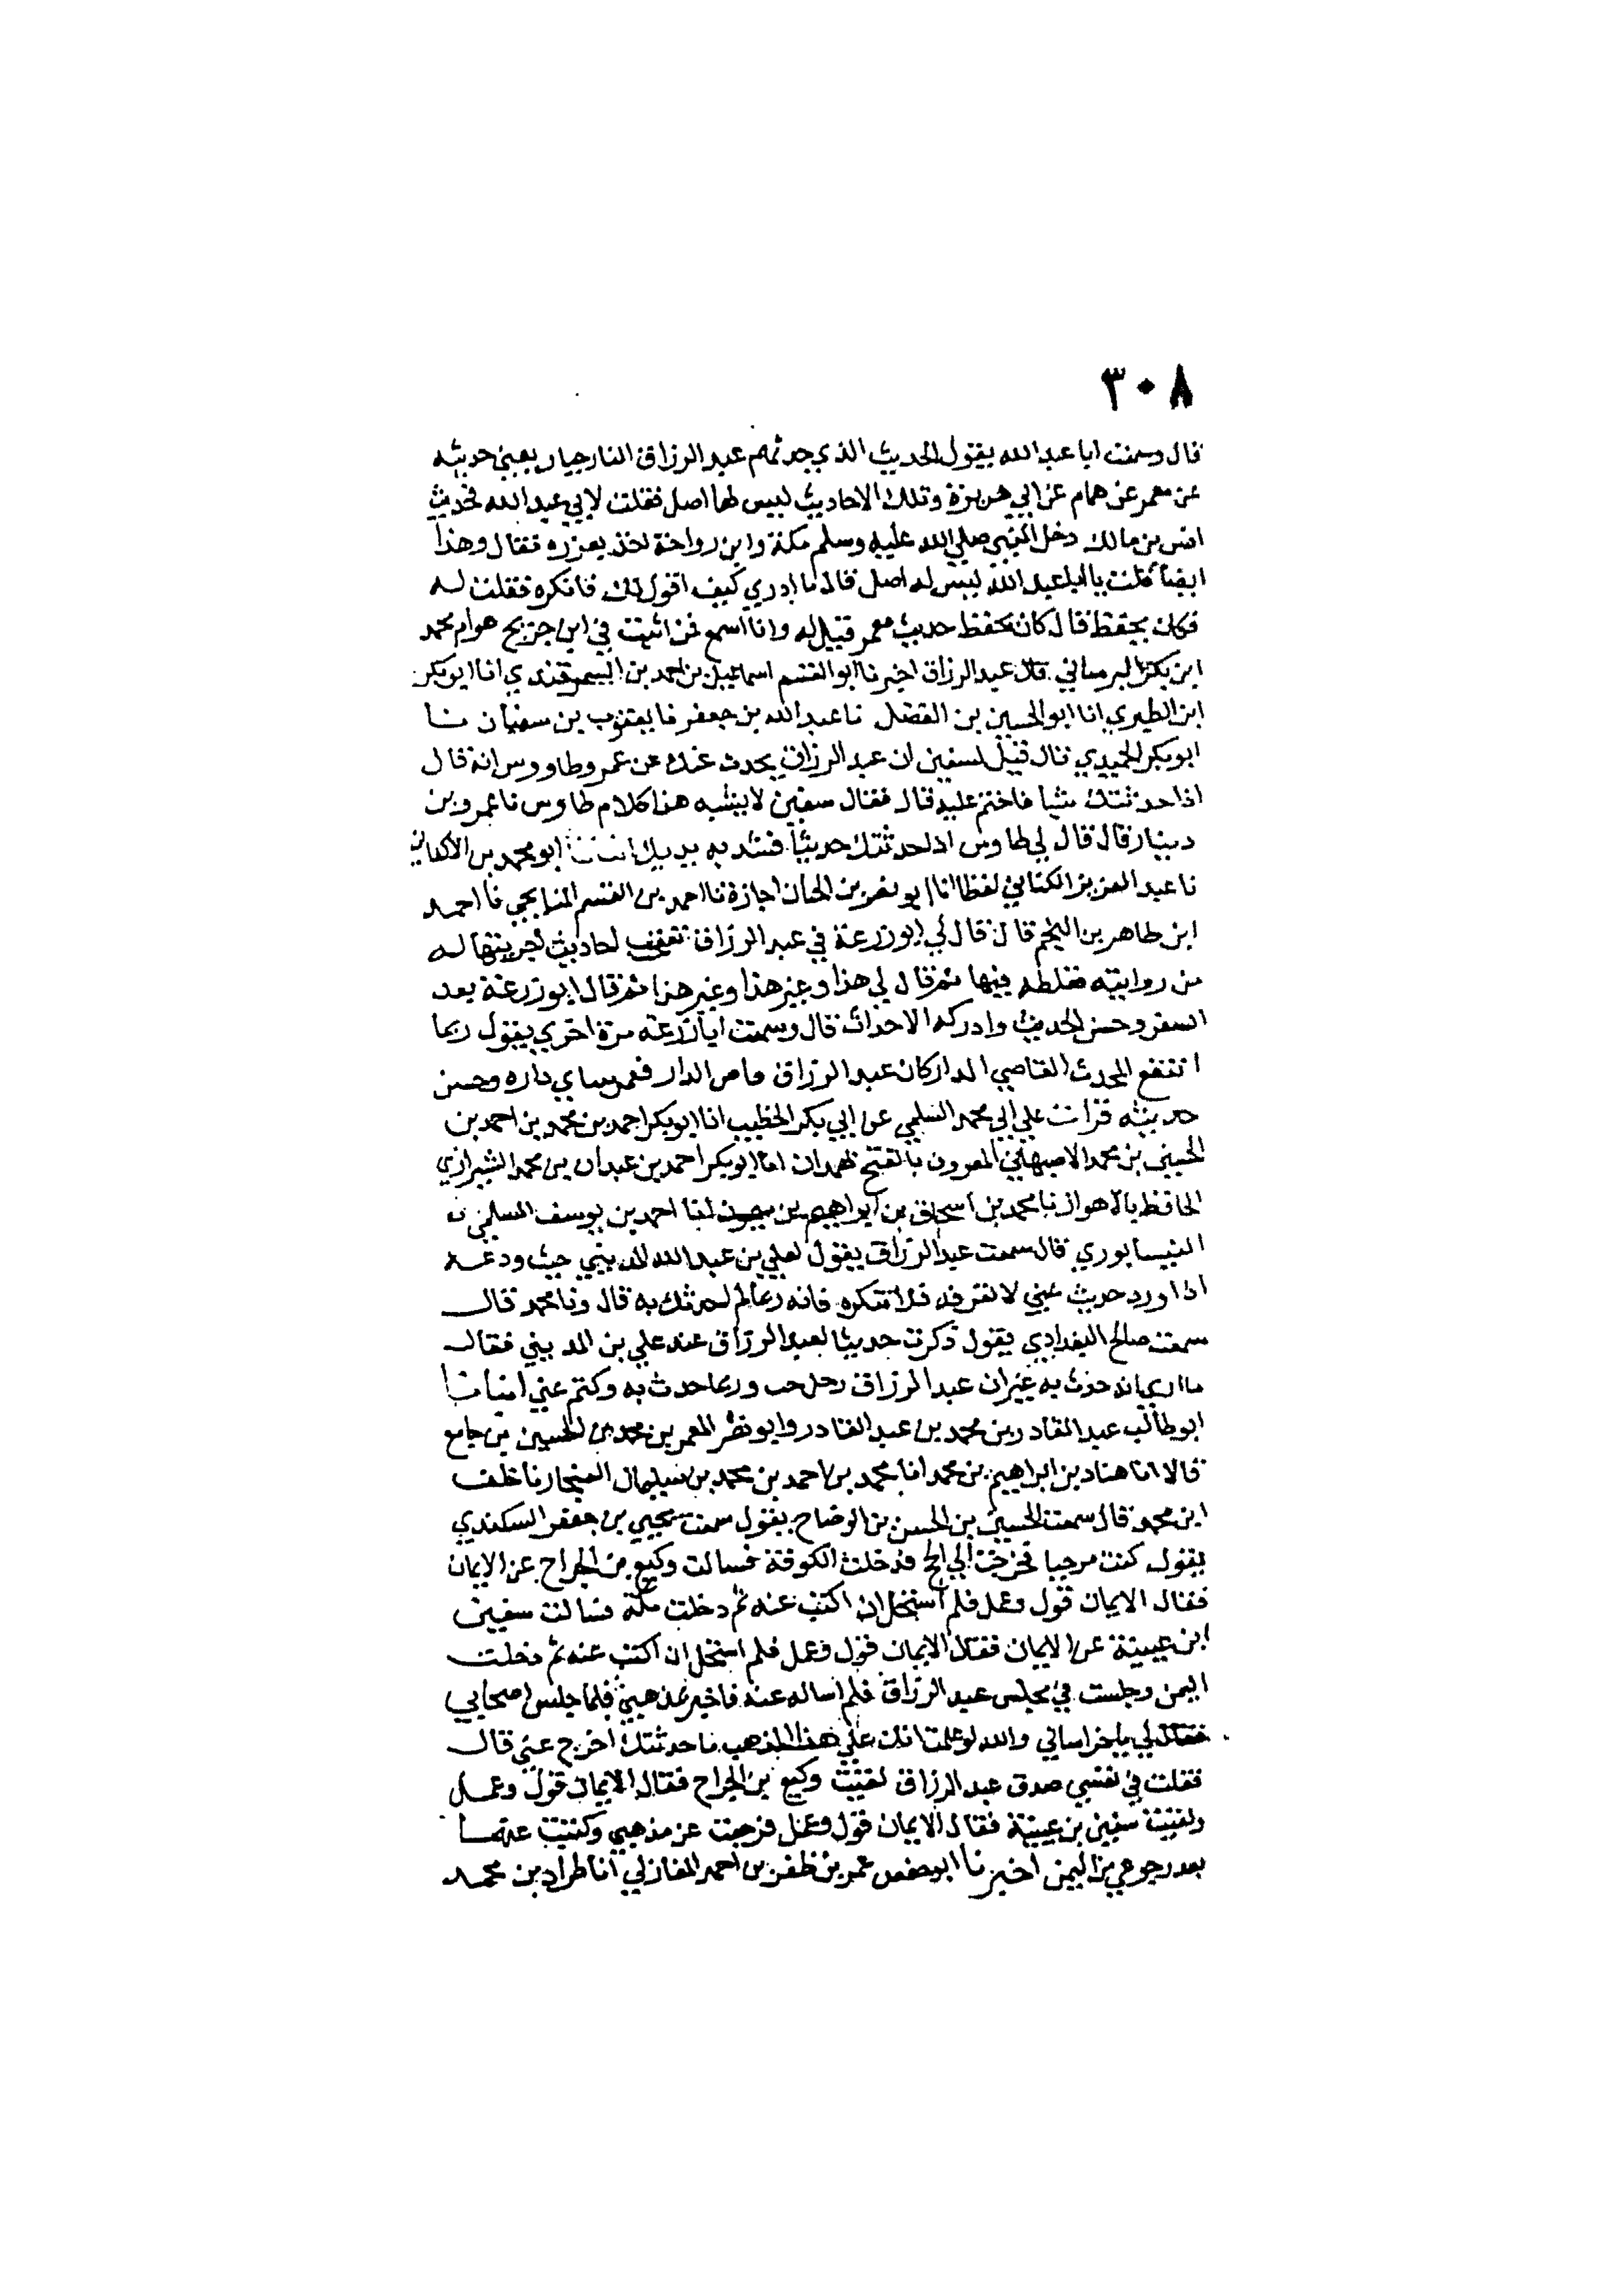 ٣٠٨
قال وسمعت ابا عبد الله يقول الحديث الذي حدثهم عبد الرزاق النار جبار يعني حديثه
عن معمر عن همام عن ابي هريرة وتلك الاحاديث ليس لها اصل فقلت لابي عبد الله فحديث
انس بن مالك دخل النبي صلي الله عليه وسلم مكة وابن رواحة اخذ بغرزه فقال وهذا
ايضا قلت يا ابا عبد الله ليس له اصل قال ما ادري كيف اقول لك فانكره فقلت له
فكان يحفظ قال كان يحفظ حديث معمر قيل له وانا اسمع فمن اثبت في ابن جريج هو ام محمد
ابن بكر البرساني قال عبد الرزاق اخبرنا ابو القسم اسماعيل بن احمد بن السمرقندي انا ابو بكر
ابن الطبري انا ابو الحسين بن الفضل نا عبد الله بن جعفر نا يعقوب بن سفيان نا
ابو بكر الحميدي قال قيل لسفين ان عبد الرزاق يحدث عنك عن عمرو طاووس انه قال
اذا حدثتك شيا فاختم عليه قال فقال سفين لا يشبه هذا كلام طاوس نا عمرو بن
دينار قال قال لي طاوس اذا حدثتك حديثا فشد به يديك ابو محمد بن الاكفاني
نا عبد العزيز الكتاني لفظا انا ابو نصر بن الجبان اجازة نا احمد بن القسم الميانجي نا احمد
ابن طاهر بن النجم قال قال لي ابو زرعة في عبد الرزاق احاديث له
من روايته فغلطه فيها ثم قال لي هذا وغير هذا وغير هذا ثم قال ابو زرعة بعد
السفر وحسن الحديث وادركه الاحداث قال وسمعت ابا زرعة مرة اخري يقول ربما
انتفع المحدث القاصي الدار كان عبد الرزاق الدار داره وحسن
حديثه قرات علي ابي محمد السلمي عن ابي بكر الخطيب انا ابو بكر احمد بن محمد بن احمد بن
الحسين بن محمد الاصبهاني المعروف بالفتح بهمدان انا ابو بكر احمد بن عبدان بن محمد الشيرازي
الحافظ بالاهواز نا محمد بن اسحاق بن ابراهيم بن احمد بن يوسف السلمي
النيسابوري قال سمعت عبد الرزاق يقول لعلي بن عبد الله المديني حيث ودعه
اذا ورد حديث عني لا تعرفه فلا تنكره فانه ربما لم احدثك به قال ونا محمد قال
سمعت صالح البغدادي يقول ذكرت حديثا لعبد الرزاق عند علي بن المديني فقال
ما اري انه حدث به غير ان عبد الرزاق رجل وربما حدث به وكتم عني
ابو طالب عبد القادر بن محمد بن عبد القادر وابو نصر المعمر بن محمد بن الحسين بن جامع
قالا انا هناد بن ابراهيم بن محمد انا محمد بن احمد بن محمد بن سليمان الغنجار نا خلف
ابن محمد قال سمعت الحسين بن الحسن بن الوضاح يقول سمعت يحيي بن جعفر السكندي
يقول كنت مرجيا فخرجت الي الحج فدخلت الكوفة فسالت وكيع بن الجراح عن الايمان
فقال الايمان قول وعمل فلم استحل ان اكتب عنه ثم دخلت مكة فسالت سفين
ابن عيينة عن الايمان فقال الايمان قول وعمل فلم استحل ان اكتب عنه ثم دخلت
اليمن وجلست في مجلس عبد الرزاق فلم اساله عنه فاخبر بمذهبي فلما جلس اصحابي
فقال لي يا خراساني والله لو علمت انك علي هذا المذهب ما حدثتك اخرج عني قال
فقلت في نفسي صدق عبد الرزاق لقيت وكيع بن الجراح فقال الايمان قول وعمل
ولقيت سفين بن عيينة فقال الايمان قول وعمل فرجعت عن مذهبي وكتبت عنهما
بعد رجوعي من اليمن اخبرنا ابو حفص عمر بن ظفر بن احمد المغازلي انا طراد بن محمد